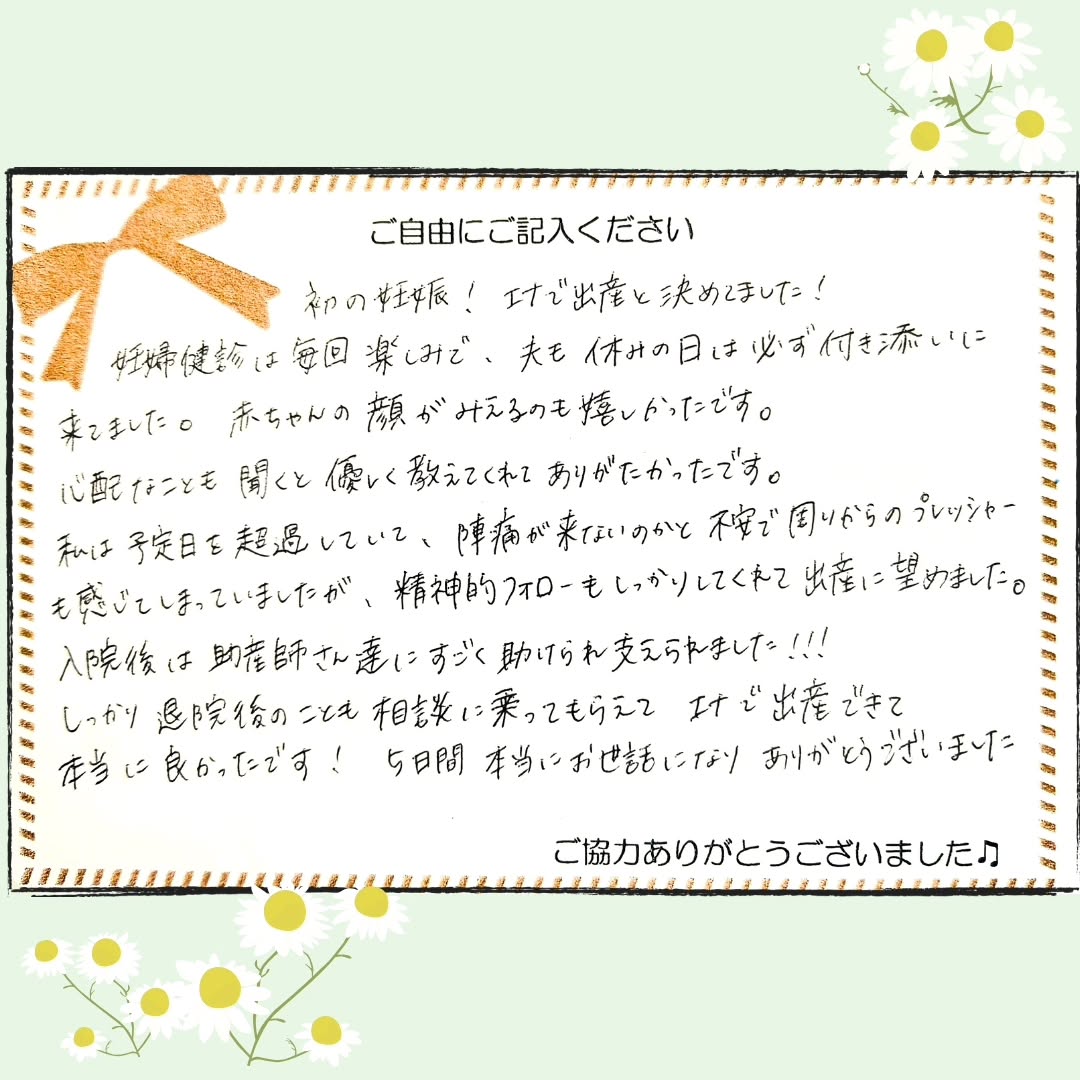 ご自由にご記入ください
初の妊娠! エナで出産と決めてました!
妊婦健診は毎回楽しみで、夫も休みの日は必ず付き添いに
来てました。赤ちゃんの顔がみえるのも嬉しかったです。
心配なことも聞くと優しく教えてくれてありがたかったです。
私は予定日を超過していて、陣痛が来ないのかと不安で周りからのプレッシャー
も感じてしまっていましたが、精神的フォローもしっかりしてくれて出産に望めました。
入院後は助産師さん達にすごく助けられ支えられました!!!
しっかり退院後のことも相談に乗ってもらえて エナで出産できて
本当に良かったです! 5日間本当にお世話になりありがとうございました
ご協力ありがとうございました♫